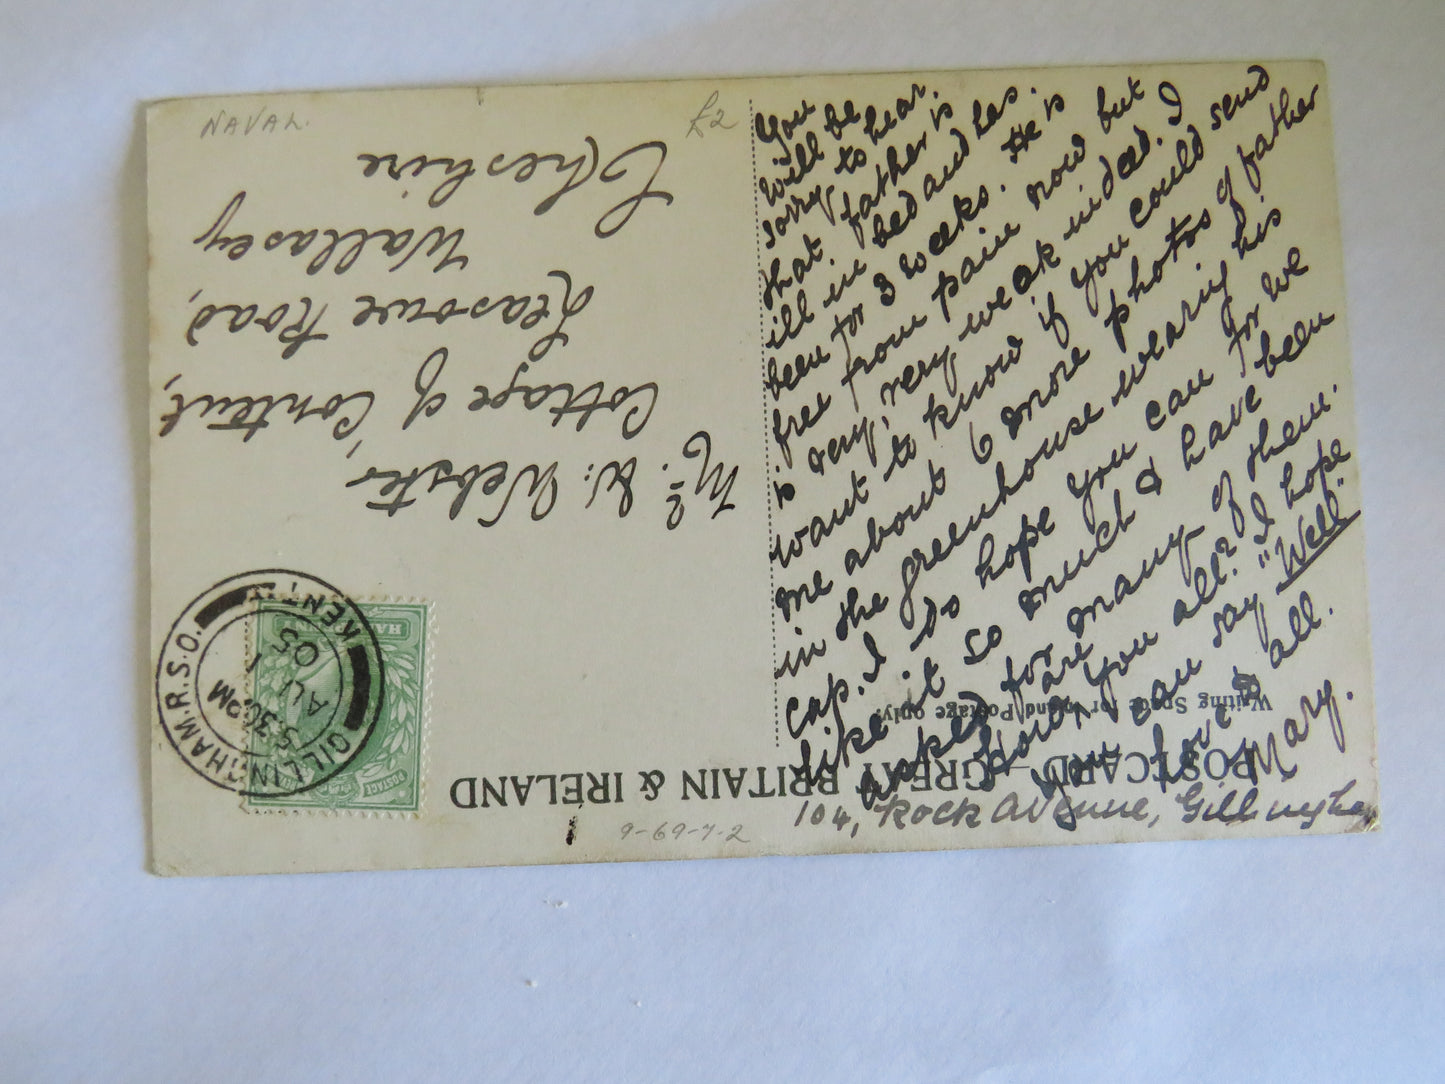 NAVAL.
£2
POSTCARD - GREAT BRITAIN & IRELAND
Writing Space for Inland Postage only.
GILLINGHAM.R.S.O.
KENT
5.30PM
AU 1
05
HALF
POSTAGE
Mr. W. Webster
Cottage of Content,
Leasowe Road,
Wallasey
Cheshire
104, Rock Avenue, Gillingham
You
will be
sorry to hear.
that father is
ill in bed and has.
been for 3 weeks. He is
free from pain now but
is very, very weak indeed. I
want to know if you could send
me about 6 more photos of father
in the greenhouse wearing his
cap. I do hope you can for we
like it so much & have been
asked for many of them.
How are you all? I hope
you can say "Well".
Love to all.
Mary.
9-69-7-2